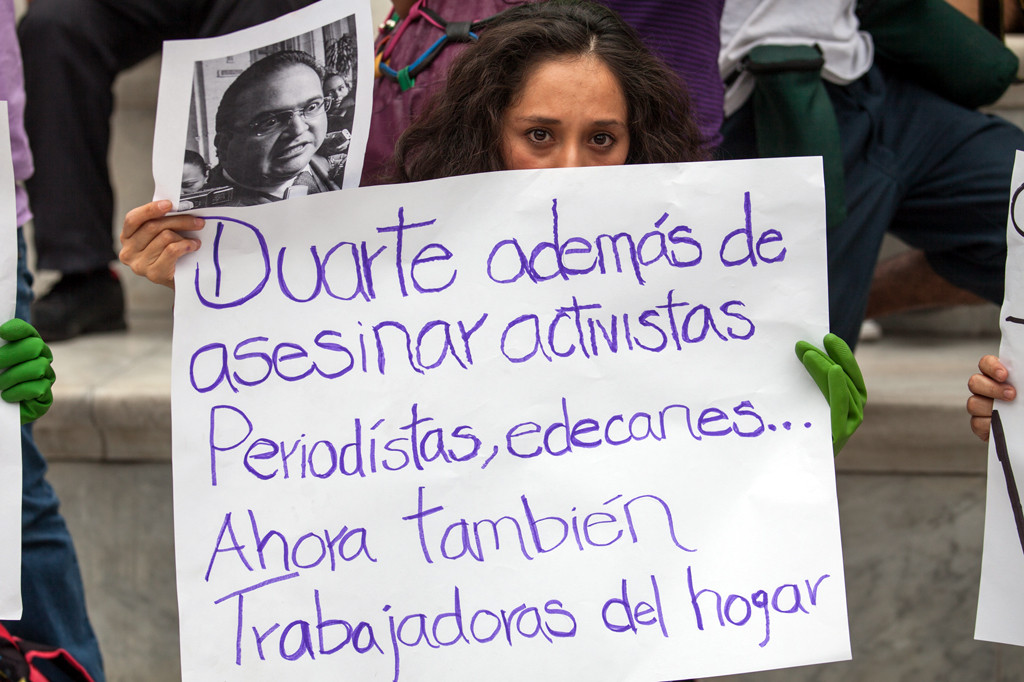 Duarte además de
asesinar activistas
Periodístas, edecanes...
Ahora también
Trabajadoras del hogar